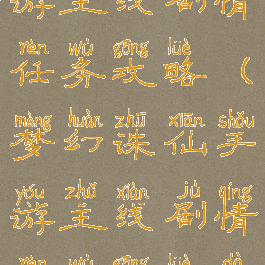 游主线剧情
rèn wù gōng lüè
任务攻略（
mèng huàn zhū xiān shǒu
梦幻诛仙手
yóu zhǔ xiàn jù qíng
游主线剧情
rèn wù gōng lüè dà